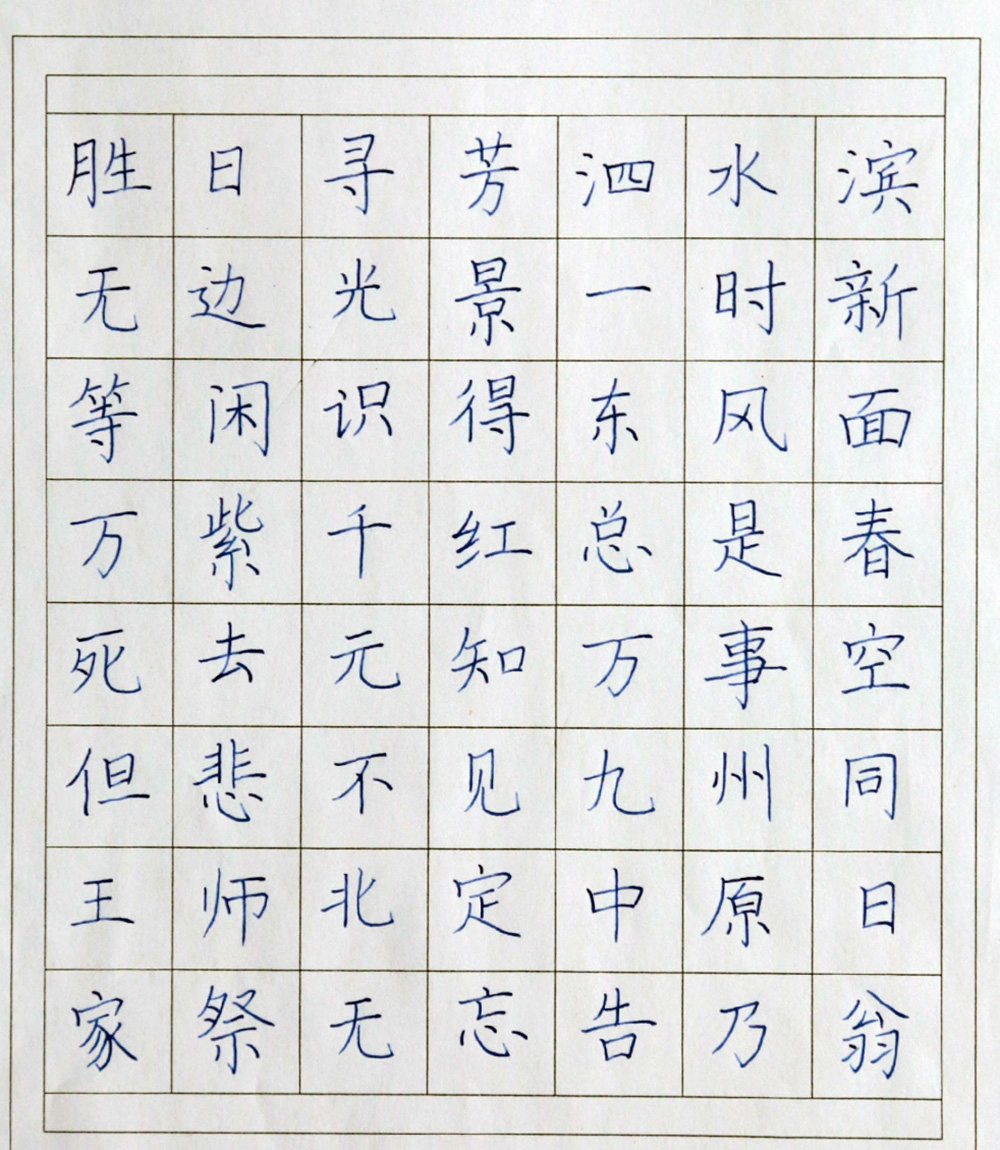 胜日寻芳泗水滨
无边光景一时新
等闲识得东风面
万紫千红总是春
死去元知万事空
但悲不见九州同
王师北定中原日
家祭无忘告乃翁